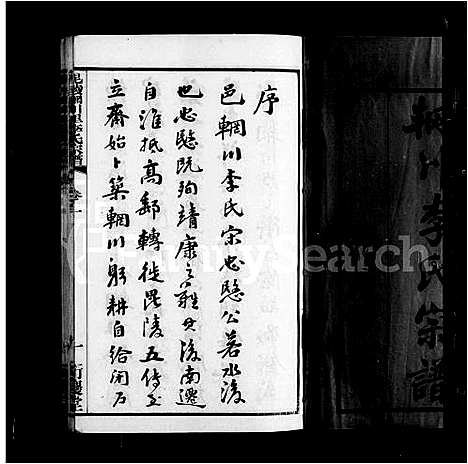 序
邑輞川李氏宗忠愍公若水後
也忠愍既殉靖康之難其後南遷
自淮抵高郵轉徙毘陵五傳至
立齋始卜築輞川躬耕自給閉户
毘陵輞川里李氏宗譜
卷一
一
輞川李氏宗譜
FamilySearch